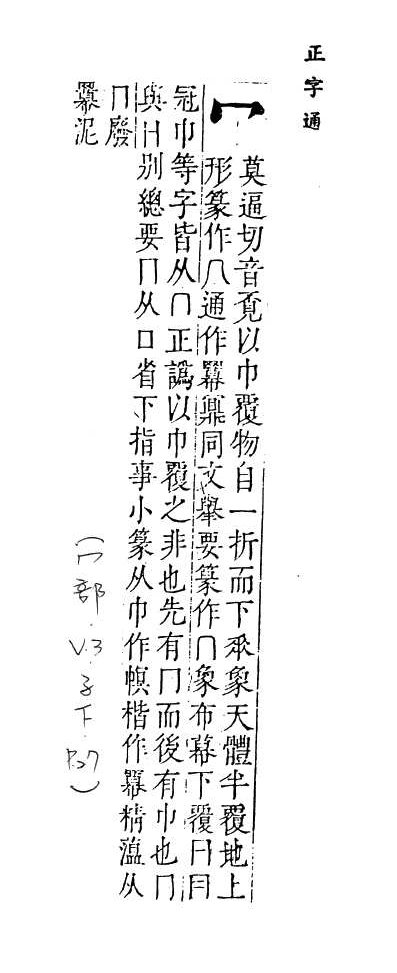 正字通
冖
莫逼切音覔以巾覆物自一折而下𠂹象天體半覆地上
形篆作冖通作羃鼏同文舉要篆作冂象布幕下覆曰冃
冠巾等字皆从冖正譌以巾覆之非也先有冂而後有巾也冂
與日别總要冂从口省下指事小篆从巾作幎楷作羃精薀从
冂廢
羃泥
(冖部.V.3.子下.P.27)